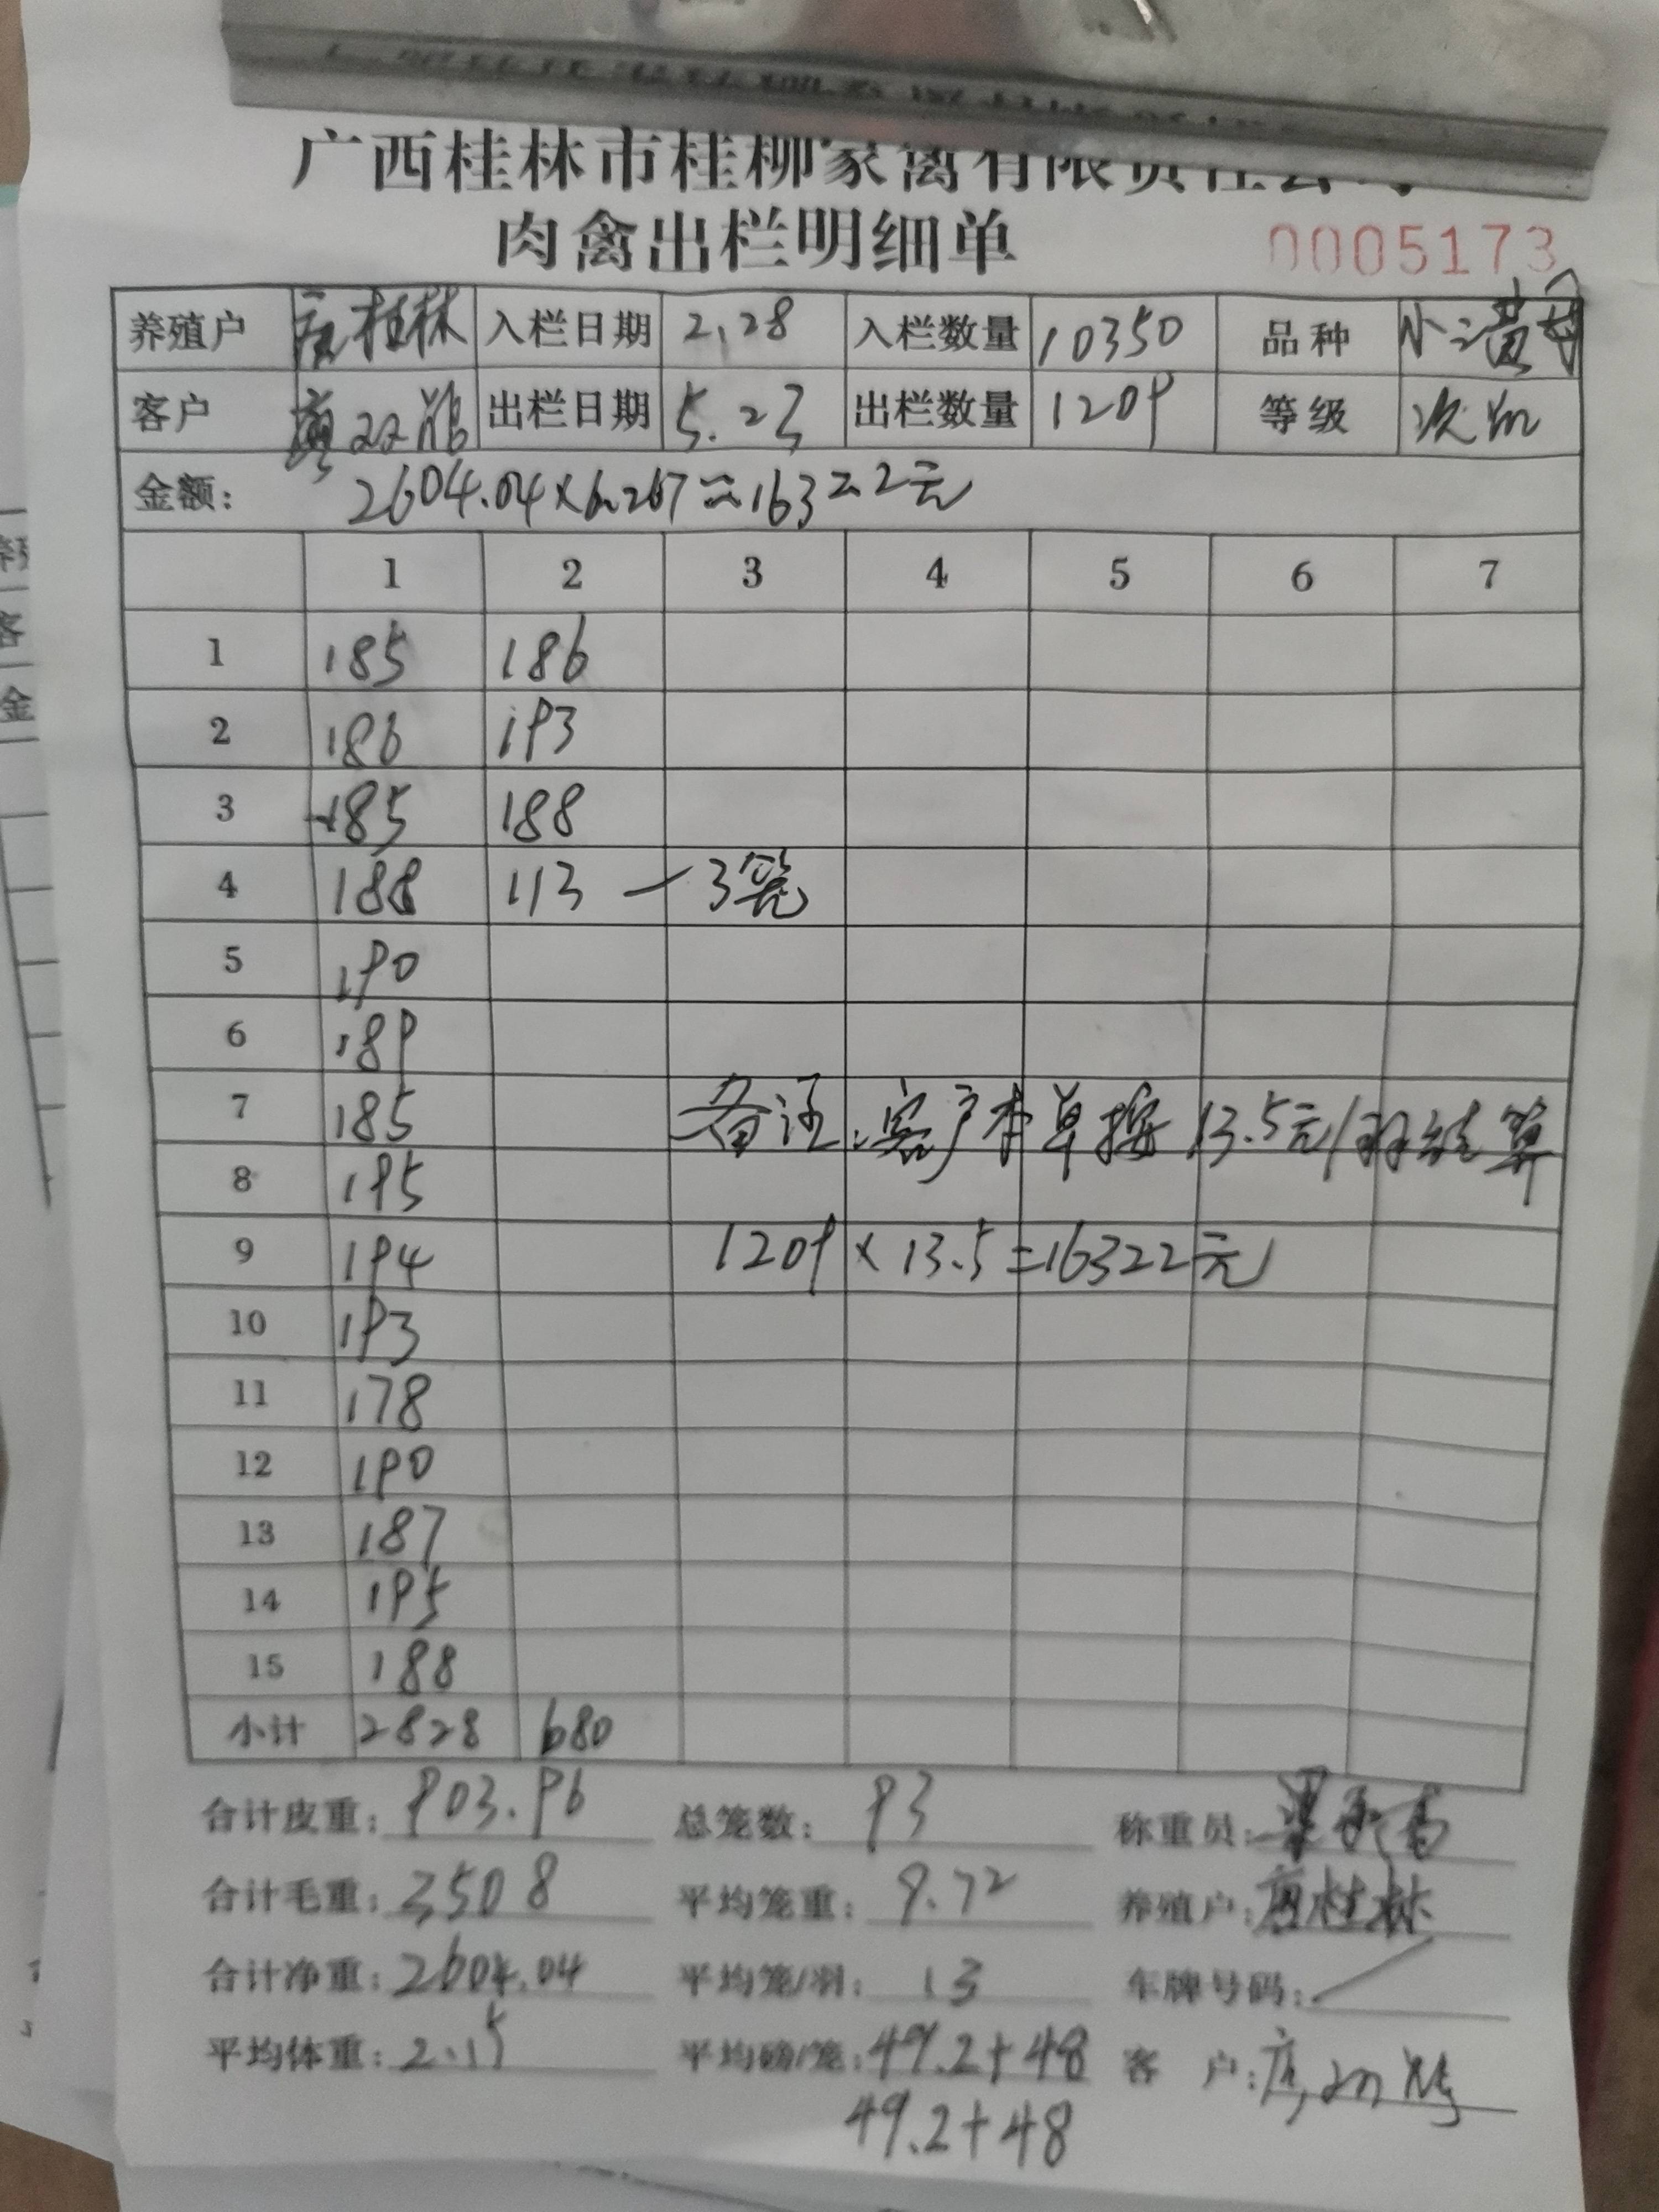 广西桂林市桂柳家禽有限责任公司
肉禽出栏明细单 0005173
养殖户 唐桂林 入栏日期 2.28 入栏数量 10350 品种 小二黄母
客户 出栏日期 5.23 出栏数量 1209 等级
金额: 2604.04×6.267≈16322元
1 2 3 4 5 6 7
1 185 186
2 186 193
3 185 188
4 188 113 — 3笼
5 190
6 189
7 185 备注:客户本单按13.5元/羽结算
8 195
9 194 1209×13.5=16322元
10 193
11 178
12 190
13 187
14 195
15 188
小计 2828 680
合计皮重: 903.96 总笼数: 93 称重员:
合计毛重: 3508 平均笼重: 9.72 养殖户: 唐桂林
合计净重: 2604.04 平均笼/羽: 13 车牌号码:
平均体重: 2.15 平均磅/笼: 49.2+48 客 户:
49.2+48